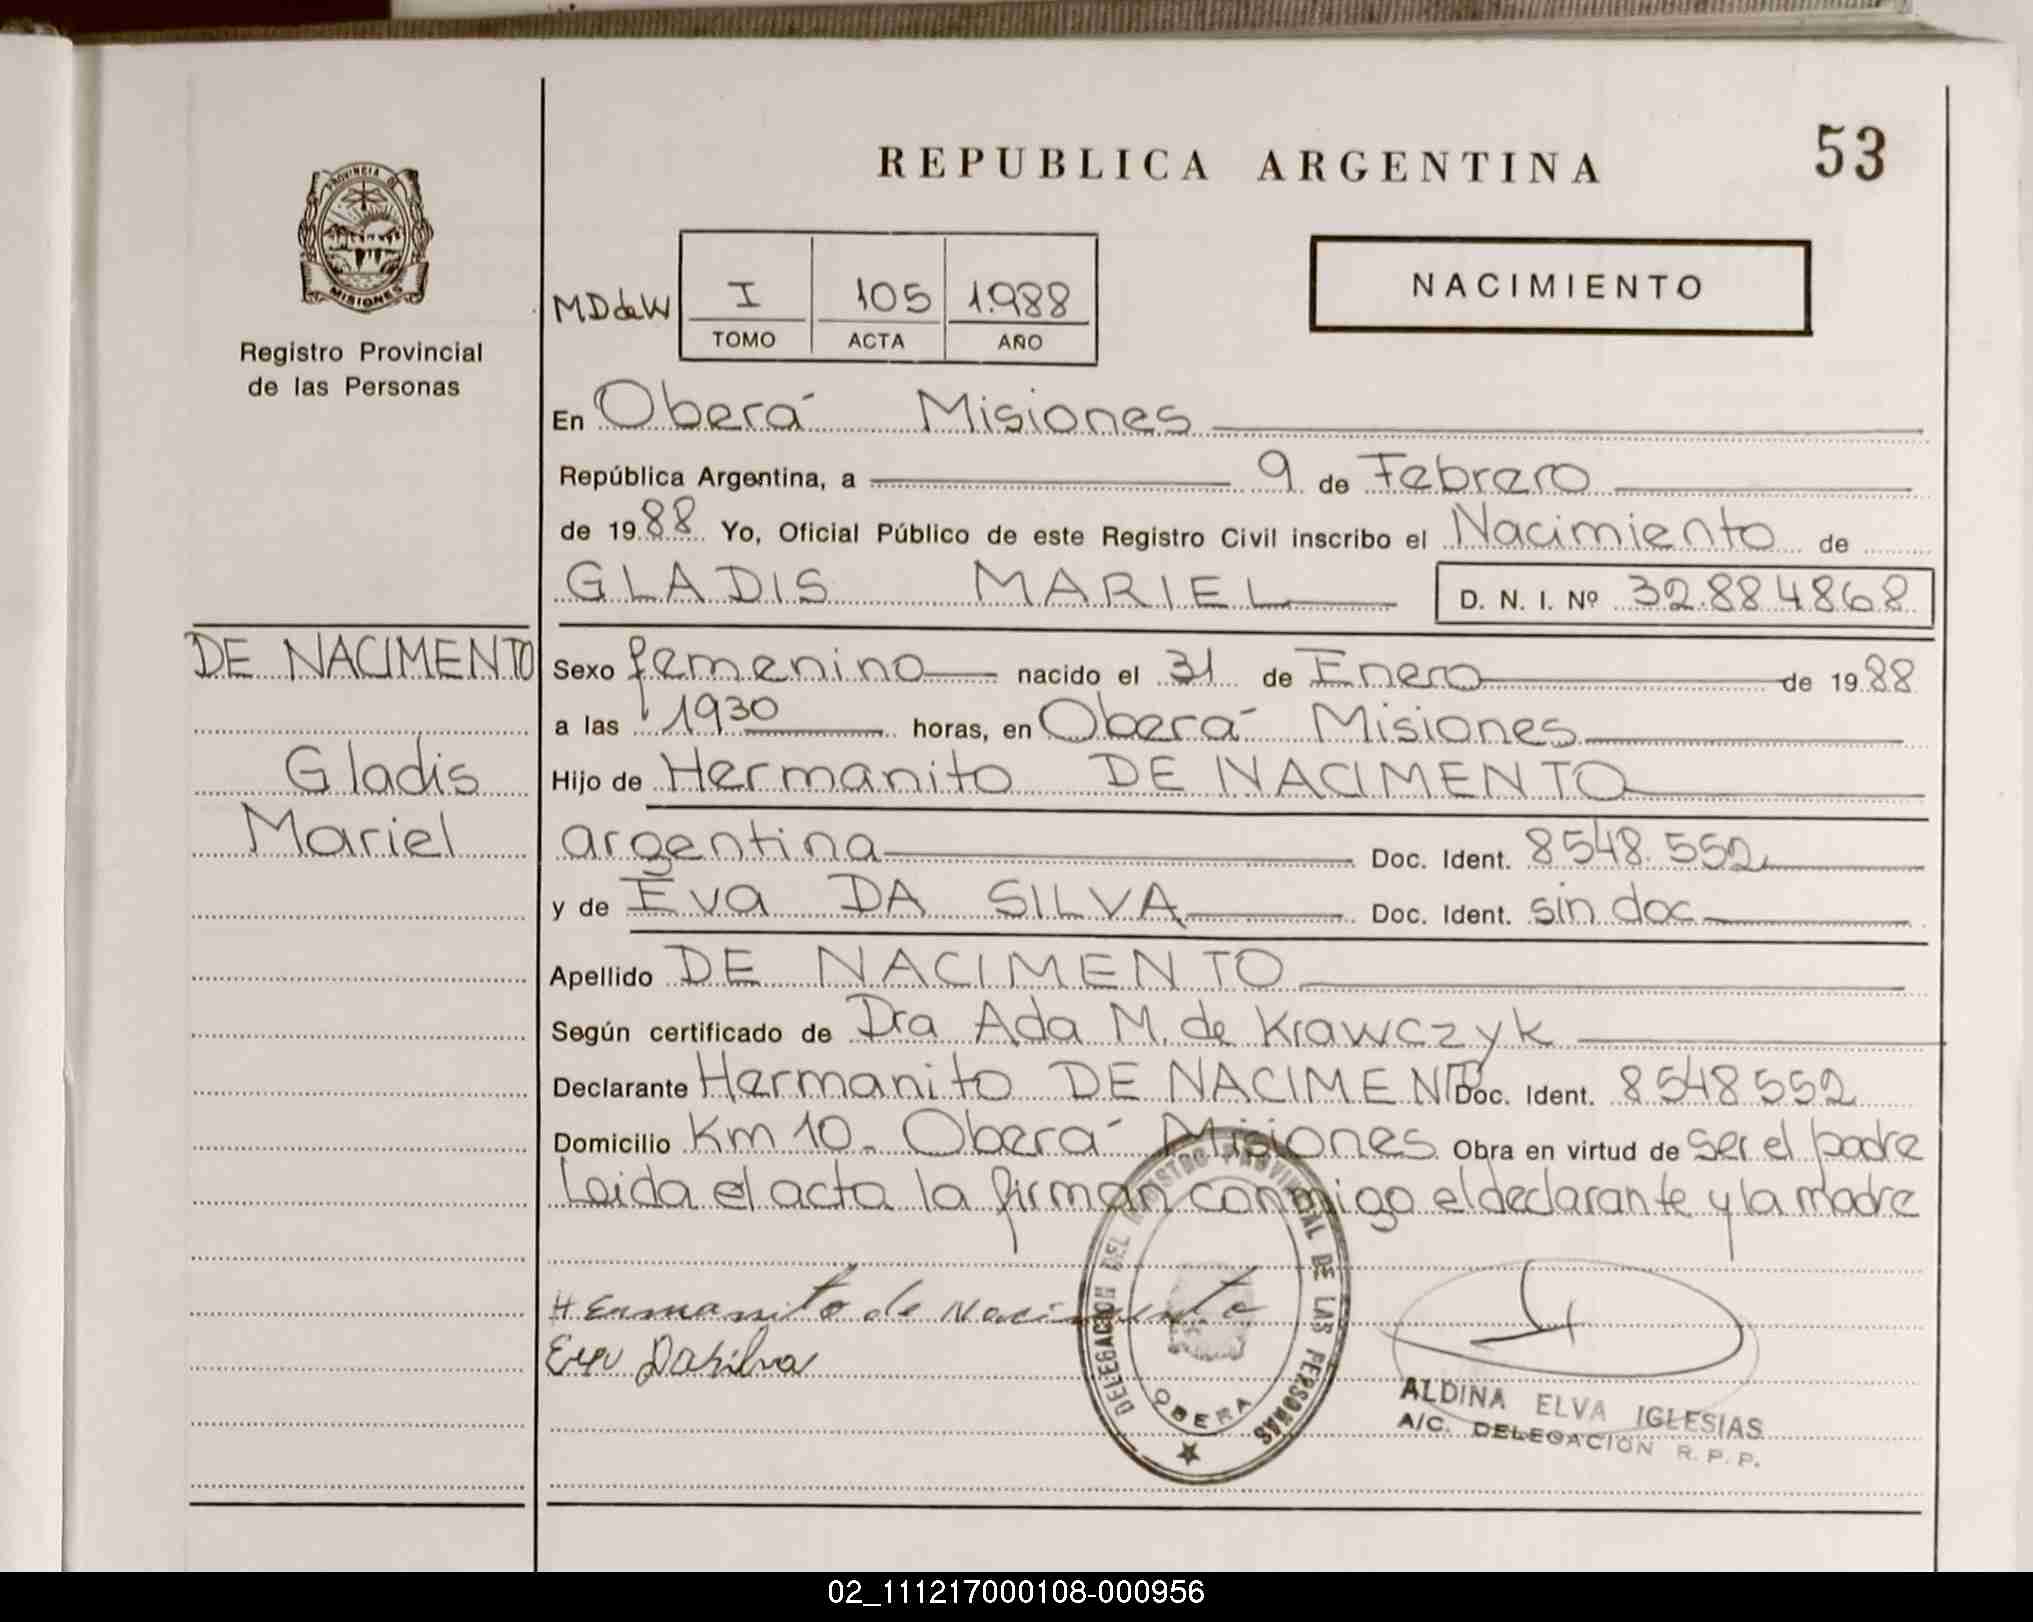 REPUBLICA ARGENTINA
53
PROVINCIA DE
MISIONES
Registro Provincial
de las Personas
MD de W
I 105 1.988
TOMO ACTA AÑO
NACIMIENTO
En Oberá Misiones
República Argentina, a 9 de Febrero
de 1988 Yo, Oficial Público de este Registro Civil inscribo el Nacimiento de
GLADIS MARIEL D. N. I. Nº 32.884868
DE NACIMENTO
Gladis
Mariel
Sexo femenino nacido el 31 de Enero de 1988
a las 1930 horas, en Oberá Misiones
Hijo de Hermanito DE NACIMENTO
argentina Doc. Ident. 8548.552
y de Eva DA SILVA Doc. Ident. sin doc
Apellido DE NACIMENTO
Según certificado de Dra Ada M. de Krawczyk
Declarante Hermanito DE NACIMENTO Doc. Ident. 8548552
Domicilio Km 10. Oberá Misiones Obra en virtud de ser el padre
Leida el acta la firman conmigo el declarante y la madre
Hermanito de Nacimento
Eva Dasilva
DELEGACION DEL REGISTRO PROVINCIAL DE LAS PERSONAS
OBERA
ALDINA ELVA IGLESIAS
A/C. DELEGACION R. P. P.
02_111217000108-000956